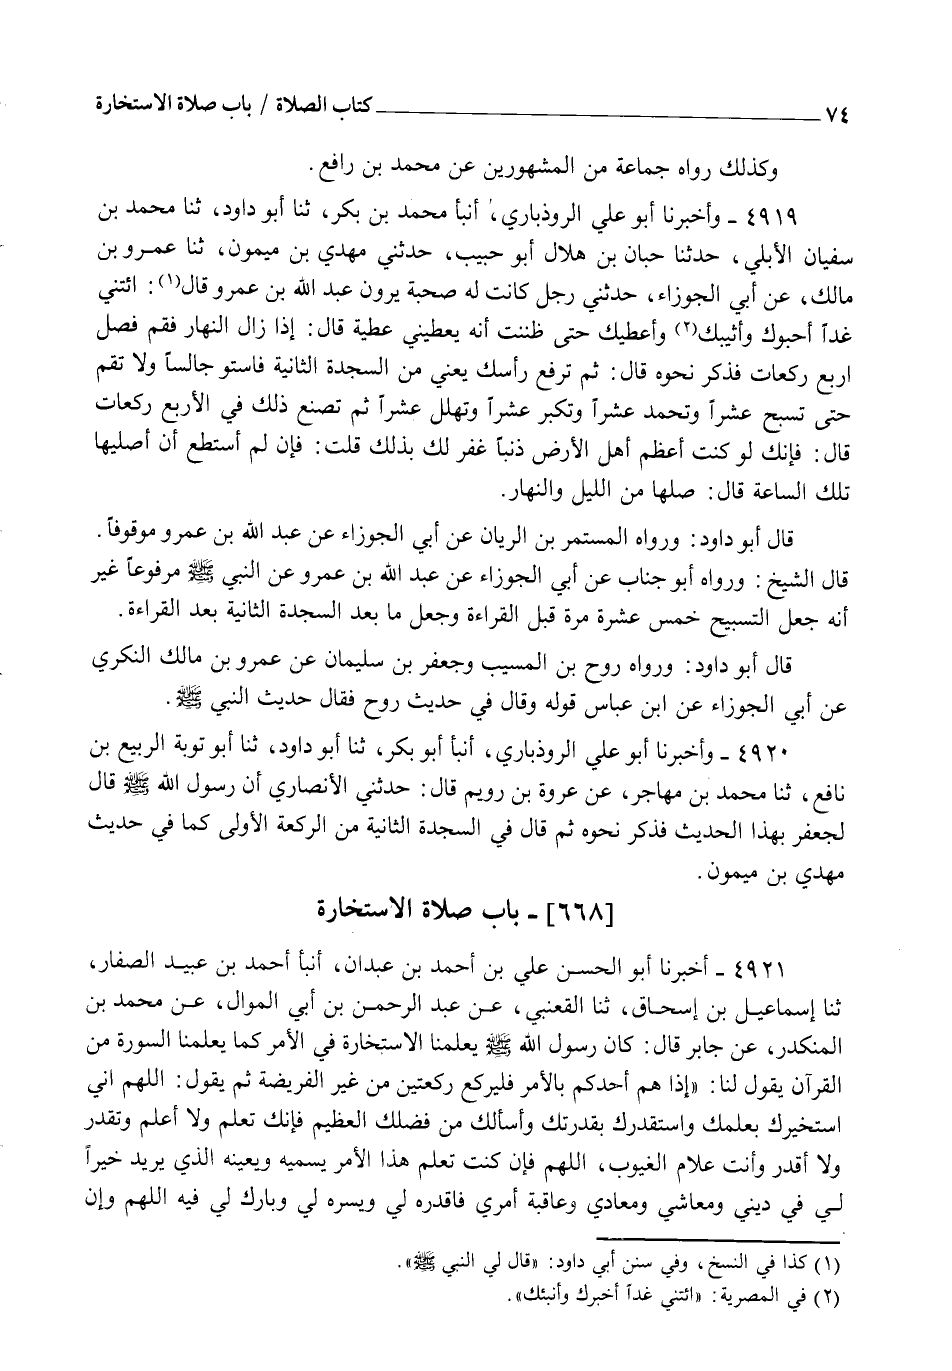 ٧٤ كتاب الصلاة / باب صلاة الاستخارة
وكذلك رواه جماعة من المشهورين عن محمد بن رافع.
٤٩١٩ ـ وأخبرنا أبو علي الروذباري، أنبأ محمد بن بكر، ثنا أبو داود، ثنا محمد بن
سفيان الأبلي، حدثنا حبان بن هلال أبو حبيب، حدثني مهدي بن ميمون، ثنا عمرو بن
مالك، عن أبي الجوزاء، حدثني رجل كانت له صحبة يرون عبد الله بن عمرو قال(١): ائتني
غداً أحبوك وأثيبك(٢) وأعطيك حتى ظننت أنه يعطيني عطية قال: إذا زال النهار فقم فصل
اربع ركعات فذكر نحوه قال: ثم ترفع رأسك يعني من السجدة الثانية فاستو جالساً ولا تقم
حتى تسبح عشراً وتحمد عشراً وتكبر عشراً وتهلل عشراً ثم تصنع ذلك في الأربع ركعات
قال: فإنك لو كنت أعظم أهل الأرض ذنباً غفر لك بذلك قلت: فإن لم أستطع أن أصليها
تلك الساعة قال: صلها من الليل والنهار.
قال أبو داود: ورواه المستمر بن الريان عن أبي الجوزاء عن عبد الله بن عمرو موقوفاً.
قال الشيخ: ورواه أبو جناب عن أبي الجوزاء عن عبد الله بن عمرو عن النبي ﷺ مرفوعاً غير
أنه جعل التسبيح خمس عشرة مرة قبل القراءة وجعل ما بعد السجدة الثانية بعد القراءة.
قال أبو داود: ورواه روح بن المسيب وجعفر بن سليمان عن عمرو بن مالك النكري
عن أبي الجوزاء عن ابن عباس قوله وقال في حديث روح فقال حديث النبي ﷺ.
٤٩٢٠ ـ وأخبرنا أبو علي الروذباري، أنبأ أبو بكر، ثنا أبو داود، ثنا أبو توبة الربيع بن
نافع، ثنا محمد بن مهاجر، عن عروة بن رويم قال: حدثني الأنصاري أن رسول الله ﷺ قال
لجعفر بهذا الحديث فذكر نحوه ثم قال في السجدة الثانية من الركعة الأولى كما في حديث
مهدي بن ميمون.
[٦٦٨] ـ باب صلاة الاستخارة
٤٩٢١ ـ أخبرنا أبو الحسن علي بن أحمد بن عبدان، أنبأ أحمد بن عبيد الصفار،
ثنا إسماعيل بن إسحاق، ثنا القعنبي، عن عبد الرحمن بن أبي الموال، عن محمد بن
المنكدر، عن جابر قال: كان رسول الله ﷺ يعلمنا الاستخارة في الأمر كما يعلمنا السورة من
القرآن يقول لنا: «إذا هم أحدكم بالأمر فليركع ركعتين من غير الفريضة ثم يقول: اللهم اني
استخيرك بعلمك واستقدرك بقدرتك وأسألك من فضلك العظيم فإنك تعلم ولا أعلم وتقدر
ولا أقدر وأنت علام الغيوب، اللهم فإن كنت تعلم هذا الأمر يسميه ويعينه الذي يريد خيراً
لي في ديني ومعاشي ومعادي وعاقبة أمري فاقدره لي ويسره لي وبارك لي فيه اللهم وإن
(١) كذا في النسخ، وفي سنن أبي داود: «قال لي النبي ﷺ».
(٢) في المصرية: «ائتني غداً أخبرك وأنبئك».